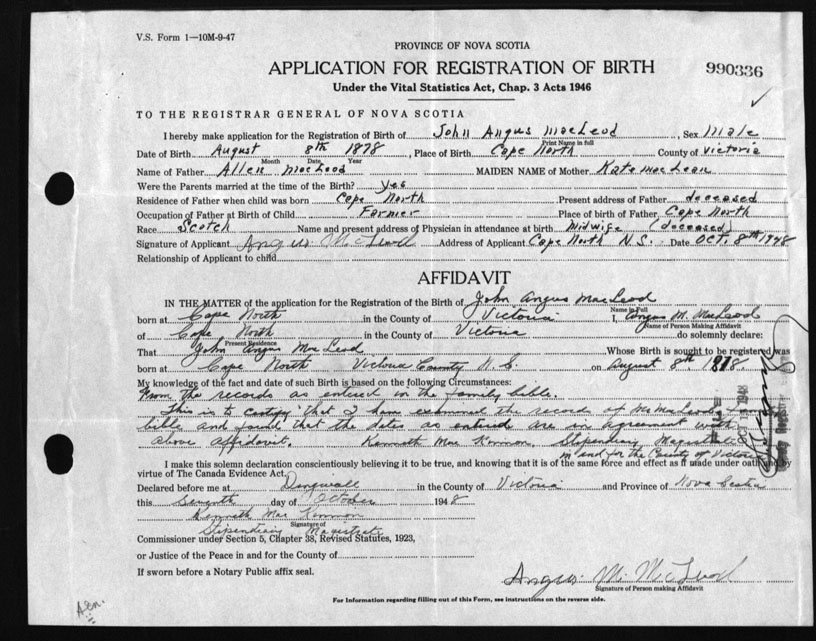 V.S. Form 1—10M-9-47
PROVINCE OF NOVA SCOTIA
APPLICATION FOR REGISTRATION OF BIRTH
990336
Under the Vital Statistics Act, Chap. 3 Acts 1946
TO THE REGISTRAR GENERAL OF NOVA SCOTIA
I hereby make application for the Registration of Birth of John Angus MacLeod, Sex Male
Print Name in full
Date of Birth August 8th 1878, Place of Birth Cape North County of Victoria
Month Date Year
Name of Father Allen MacLeod MAIDEN NAME of Mother Kate MacLean
Were the Parents married at the time of the Birth? yes
Residence of Father when child was born Cape North Present address of Father deceased
Occupation of Father at Birth of Child Farmer Place of birth of Father Cape North
Race Scotch Name and present address of Physician in attendance at birth Midwife (deceased)
Signature of Applicant Angus M. McLeod Address of Applicant Cape North N.S. Date Oct. 8th 1948
Relationship of Applicant to child
AFFIDAVIT
IN THE MATTER of the application for the Registration of the Birth of John Angus MacLeod
Name in Full
born at Cape North in the County of Victoria I, Angus M. MacLeod
Name of Person Making Affidavit
of Cape North in the County of Victoria do solemnly declare:
Present Residence
That John Angus MacLeod Whose Birth is sought to be registered was
born at Cape North Victoria County N.S. on August 8th 1878.
My knowledge of the fact and date of such Birth is based on the following Circumstances:
From the records as entered in the family bible.
This is to certify that I have examined the record of Mr MacLeod's family
bible and found that the dates as entered are in agreement with
above affidavit. Kenneth MacKinnon, Stipendiary Magistrate
in and for the County of Victoria
I make this solemn declaration conscientiously believing it to be true, and knowing that it is of the same force and effect as if made under oath and by
virtue of The Canada Evidence Act.
Declared before me at Dingwall in the County of Victoria and Province of Nova Scotia
this seventh day of October 1948
Kenneth MacKinnon
Signature of
Stipendiary Magistrate
Commissioner under Section 5, Chapter 38, Revised Statutes, 1923,
or Justice of the Peace in and for the County of
If sworn before a Notary Public affix seal.
Angus M. McLeod
Signature of Person making Affidavit
For Information regarding filling out of this Form, see instructions on the reverse side.